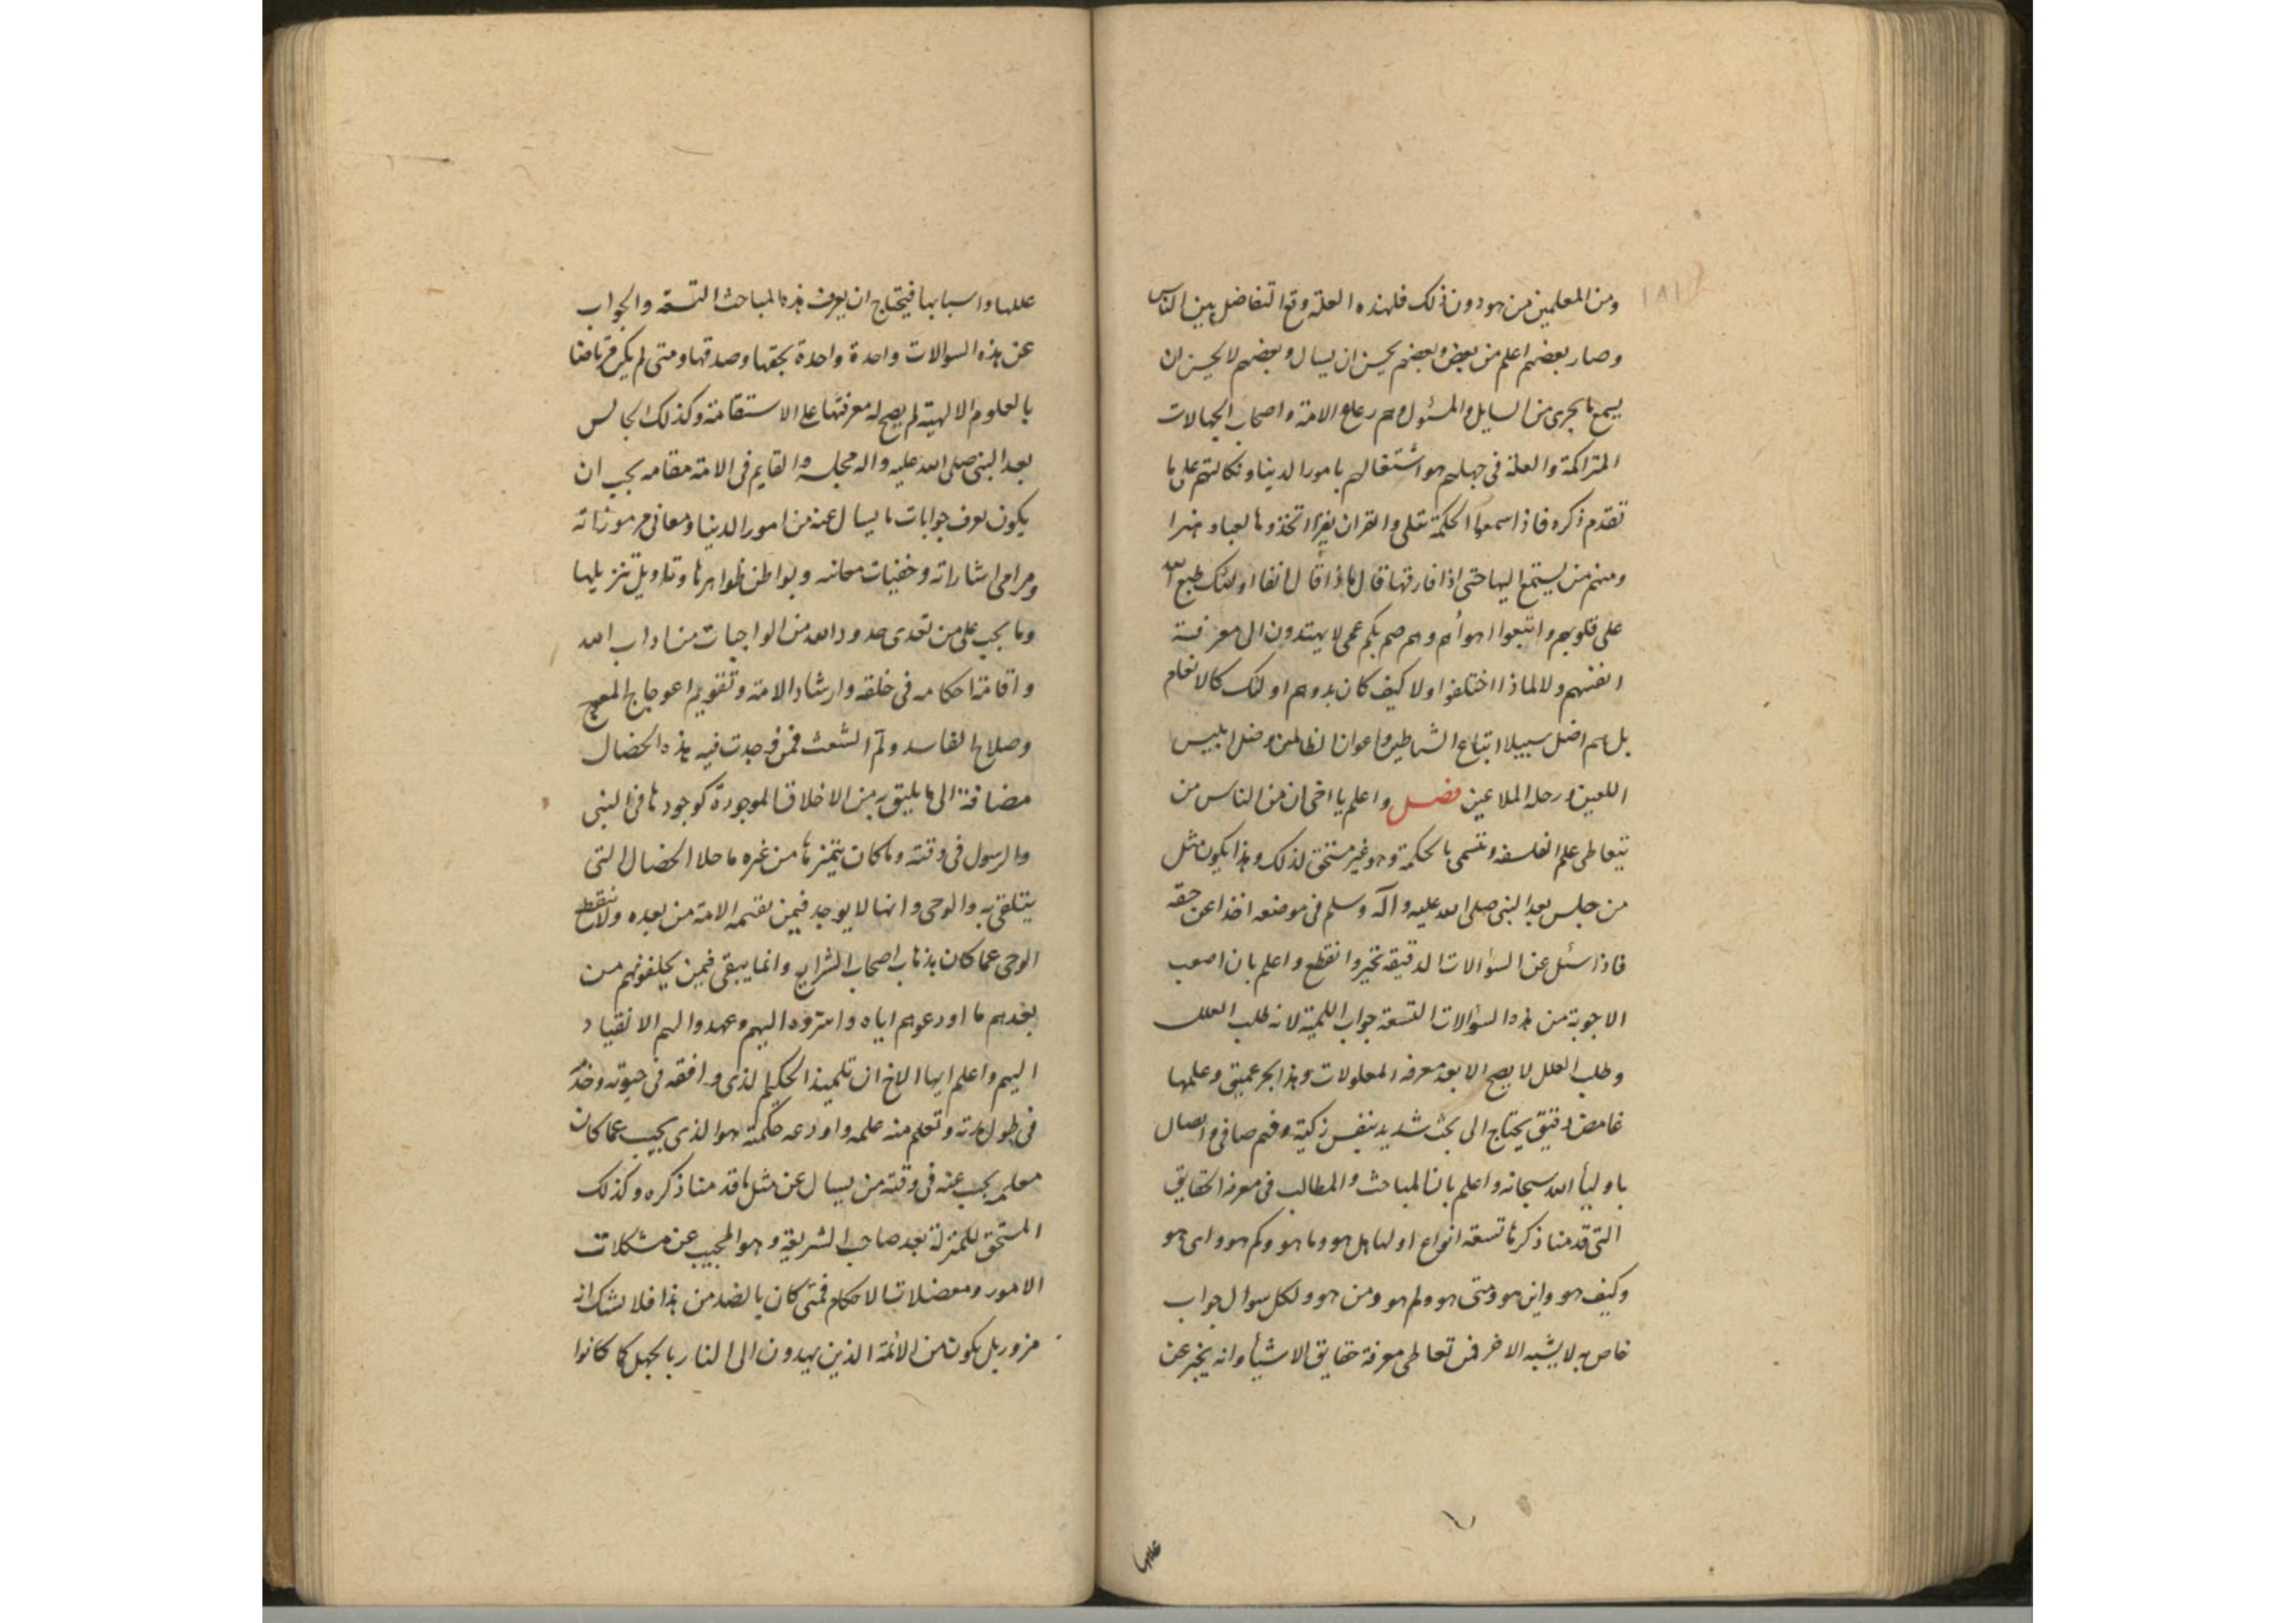 ١٨١
ومن المعلمين من هو دون ذلك فلهذه العلة وقع التفاضل بين الناس
وصار بعضهم اعلم من بعض وبعضهم يحسن ان يسال وبعضهم لا يحسن ان
يسمع ما يجرى من السايل والمسئول وهم رعاع الامة واصحاب الجهالات
المتراكمة والعلة فى جهلهم هو اشتغالهم بامور الدنيا وتكالبهم على ما
تقدم ذكره فاذا سمعوا الحكمة تتلى والقران يقرا اتخذوها لعبا وهزوا
ومنهم من يستمع اليها حتى اذا فارقها قال ماذا قال انفا اولئك طبع الله
على قلوبهم واتبعوا اهوأهم وهم صم بكم عمى لا يهتدون الى معرفة
انفسهم ولا لماذا اختلفوا ولا كيف كان بدوهم اولئك كالانعام
بل هم اضل سبيلا اتباع الشياطين واعوان الظالمين وخيل ابليس
اللعين ورجله الملاعين فصل واعلم يا اخى ان من الناس من
يتعاطى علم الفلسفه ويتسمى بالحكمة وهو غير مستحق لذلك وهذا يكون مثل
من جلس بعد النبى صلى الله عليه وآله وسلم فى موضعه اخذا عن حقه
فاذا سئل عن السؤالات الدقيقه تحير وانقطع واعلم بان اصعب
الاجوبة من هذه السؤالات التسعة جواب اللمية لانه طلب العلل
وطلب العلل لا يصح الا بعد معرفه المعلولات وهذا بحر عميق وعلمها
غامض دقيق يحتاج الى بحث شديد بنفس زكية وفهم صافى واتصال
باوليأ الله سبحانه واعلم بان المباحث والمطالب فى معرفة الحقايق
التى قدمنا ذكرها تسعة انواع اولها هل هو وما هو وكم هو واى هو
وكيف هو واين هو ومتى هو ولم هو ومن هو ولكل سوال جواب
خاص به لا يشبه الاخر فمن تعاطى معرفة حقايق الاشيأ وانه يخبر عن
عللها
عللها واسبابها فيحتاج ان يعرف هذه المباحث التسعة والجواب
عن هذه السوالات واحدة واحدة بحقها وصدقها ومتى لم يكن مرتاضا
بالعلوم الالهية لم يصح له معرفتها على الاستقامة وكذلك الجالس
بعد النبى صلى الله عليه واله مجلسه والقايم فى الامة مقامه يجب ان
يكون يعرف جوابات ما يسال عنه من امور الدنيا ومعانى مرموزاته
ومرامى اشاراته وخفيات معانيه وبواطن ظواهرها وتاويل تنزيلها
وما يجب على من تعدى حدود الله من الواجبات من اداب الله
واقامة احكامه فى خلقه وارشاد الامة وتقويم اعوجاج المعوج
وصلاح الفاسد ولم الشعث فمن وجدت فيه هذه الخصال
مضافة الى ما يليق به من الاخلاق الموجودة كوجودها فى النبى
والرسول فى وقته وما كان يتميز بها من غيره ما خلا الخصال التى
يتلقى به والوحى وانها لا يوجد فيمن تقيمه الامة من بعده ولانقطع
الوحى عما كان بذهاب اصحاب الشرايع وانما يبقى فيمن يخلفونهم من
بعدهم ما اودعوهم اياه واستروه اليهم وعهدوا لهم الانقياد
اليهم واعلم ايها الاخ ان تلميذ الحكيم الذى وافقه فى حيوته وخدمه
فى طول مدته وتعلم منه علمه واودعه حكمته هو الذى يجيب عما كان
معلمه يجيب عنه فى وقته من يسال عن مثل ما قدمنا ذكره وكذلك
المستحق للمنزلة بعد صاحب الشريعة وهو المجيب عن مشكلات
الامور ومعضلات الاحكام فمتى كان بالضد من هذا فلا يشك انه
مزور بل يكون من الائمة الذين يهدون الى النار بالجهل كما كانوا